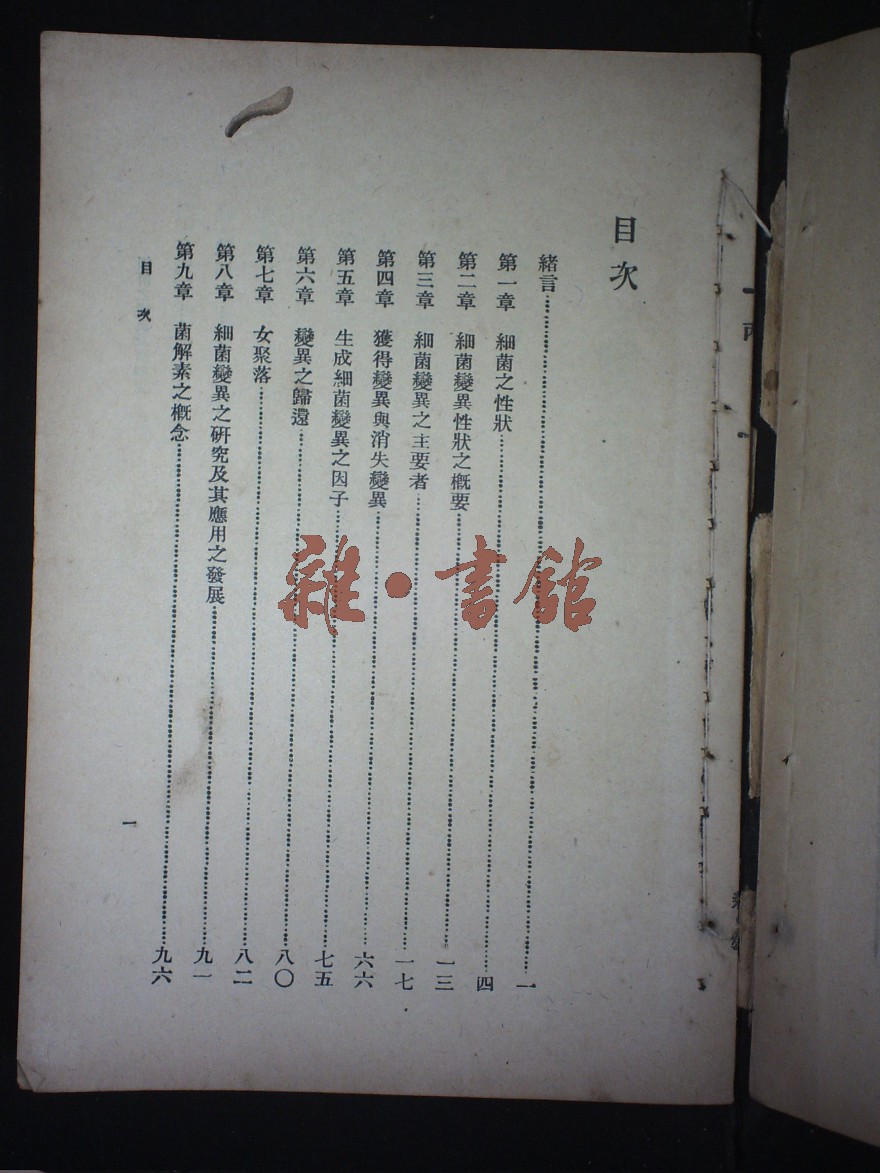 目次
緒言……一
第一章 細菌之性狀……四
第二章 細菌變異性狀之概要……一三
第三章 細菌變異之主要者……一七
第四章 獲得變異與消失變異……六六
第五章 生成細菌變異之因子……七五
第六章 變異之歸還……八〇
第七章 女聚落……八二
第八章 細菌變異之研究及其應用之發展……九一
第九章 菌解素之概念……九六
目次
一
雜·書館